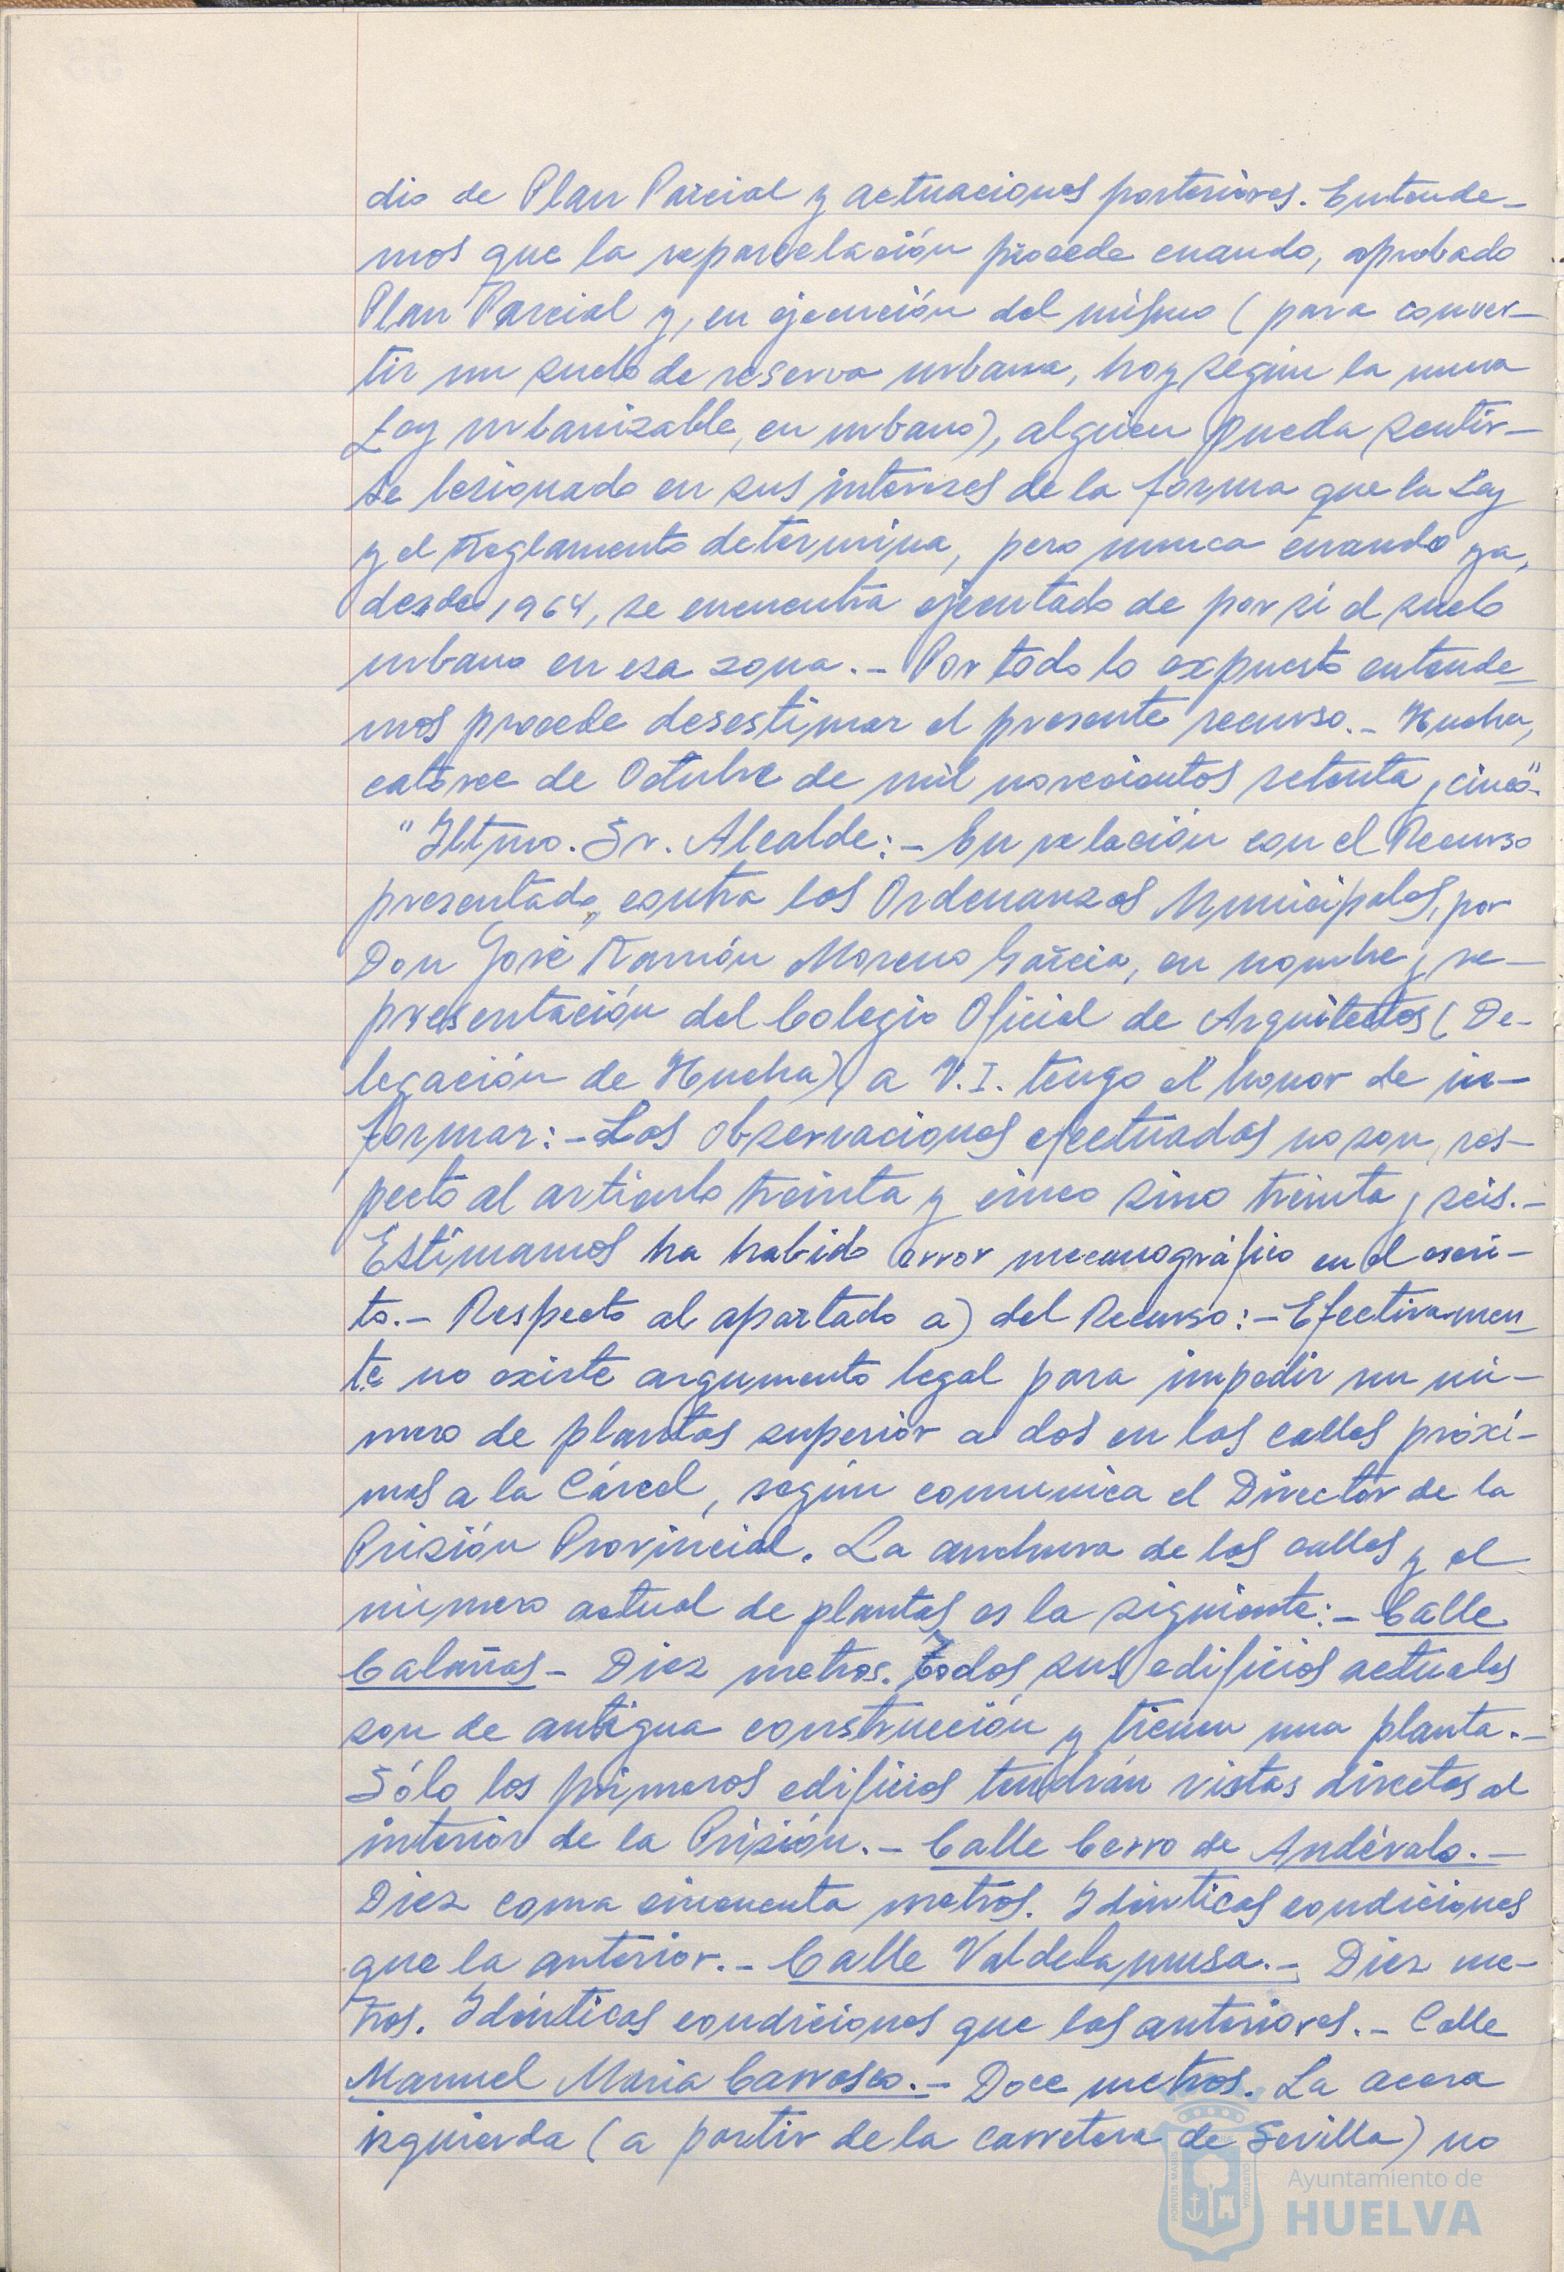 dio de Plan Parcial y actuaciones posteriores. Entende-
mos que la reparcelación procede cuando, aprobado
Plan Parcial y, en ejecución del mismo (para conver-
tir un suelo de reserva urbana, hoy según la nueva
Ley urbanizable, en urbano), alguien pueda sentir-
se lesionado en sus intereses de la forma que la Ley
y el Reglamento determina, pero nunca cuando ya,
desde 1964, se encuentra ejecutado de por sí el suelo
urbano en esa zona.- Por todo lo expuesto entende-
mos procede desestimar el presente recurso.- Huelva,
catorce de Octubre de mil novecientos setenta y cinco".
"Iltmo. Sr. Alcalde:- En relación con el Recurso
presentado, contra las Ordenanzas Municipales, por
Don José Ramón Moreno García, en nombre y re-
presentación del Colegio Oficial de Arquitectos (De-
legación de Huelva), a V.I. tengo el honor de in-
formar:- Las observaciones efectuadas no son, res-
pecto al artículo treinta y cinco sino treinta y seis.-
Estimamos ha habido error mecanográfico en el escri-
to.- Respecto al apartado a) del Recurso:- Efectivamen-
te no existe argumento legal para impedir un nú-
mero de plantas superior a dos en las calles próxi-
mas a la Cárcel, según comunica el Director de la
Prisión Provincial. La anchura de las calles y el
número actual de plantas es la siguiente:- Calle
Calañas- Diez metros. Todos sus edificios actuales
son de antigua construcción y tienen una planta.-
Sólo los primeros edificios tendrán vistas directas al
interior de la Prisión.- Calle Cerro de Andévalo.-
Diez coma cincuenta metros. Idénticas condiciones
que la anterior.- Calle Valdelamusa.- Diez me-
tros. Idénticas condiciones que las anteriores.- Calle
Manuel María Carrasco.- Doce metros. La acera
izquierda (a partir de la carretera de Sevilla) no
Ayuntamiento de
HUELVA